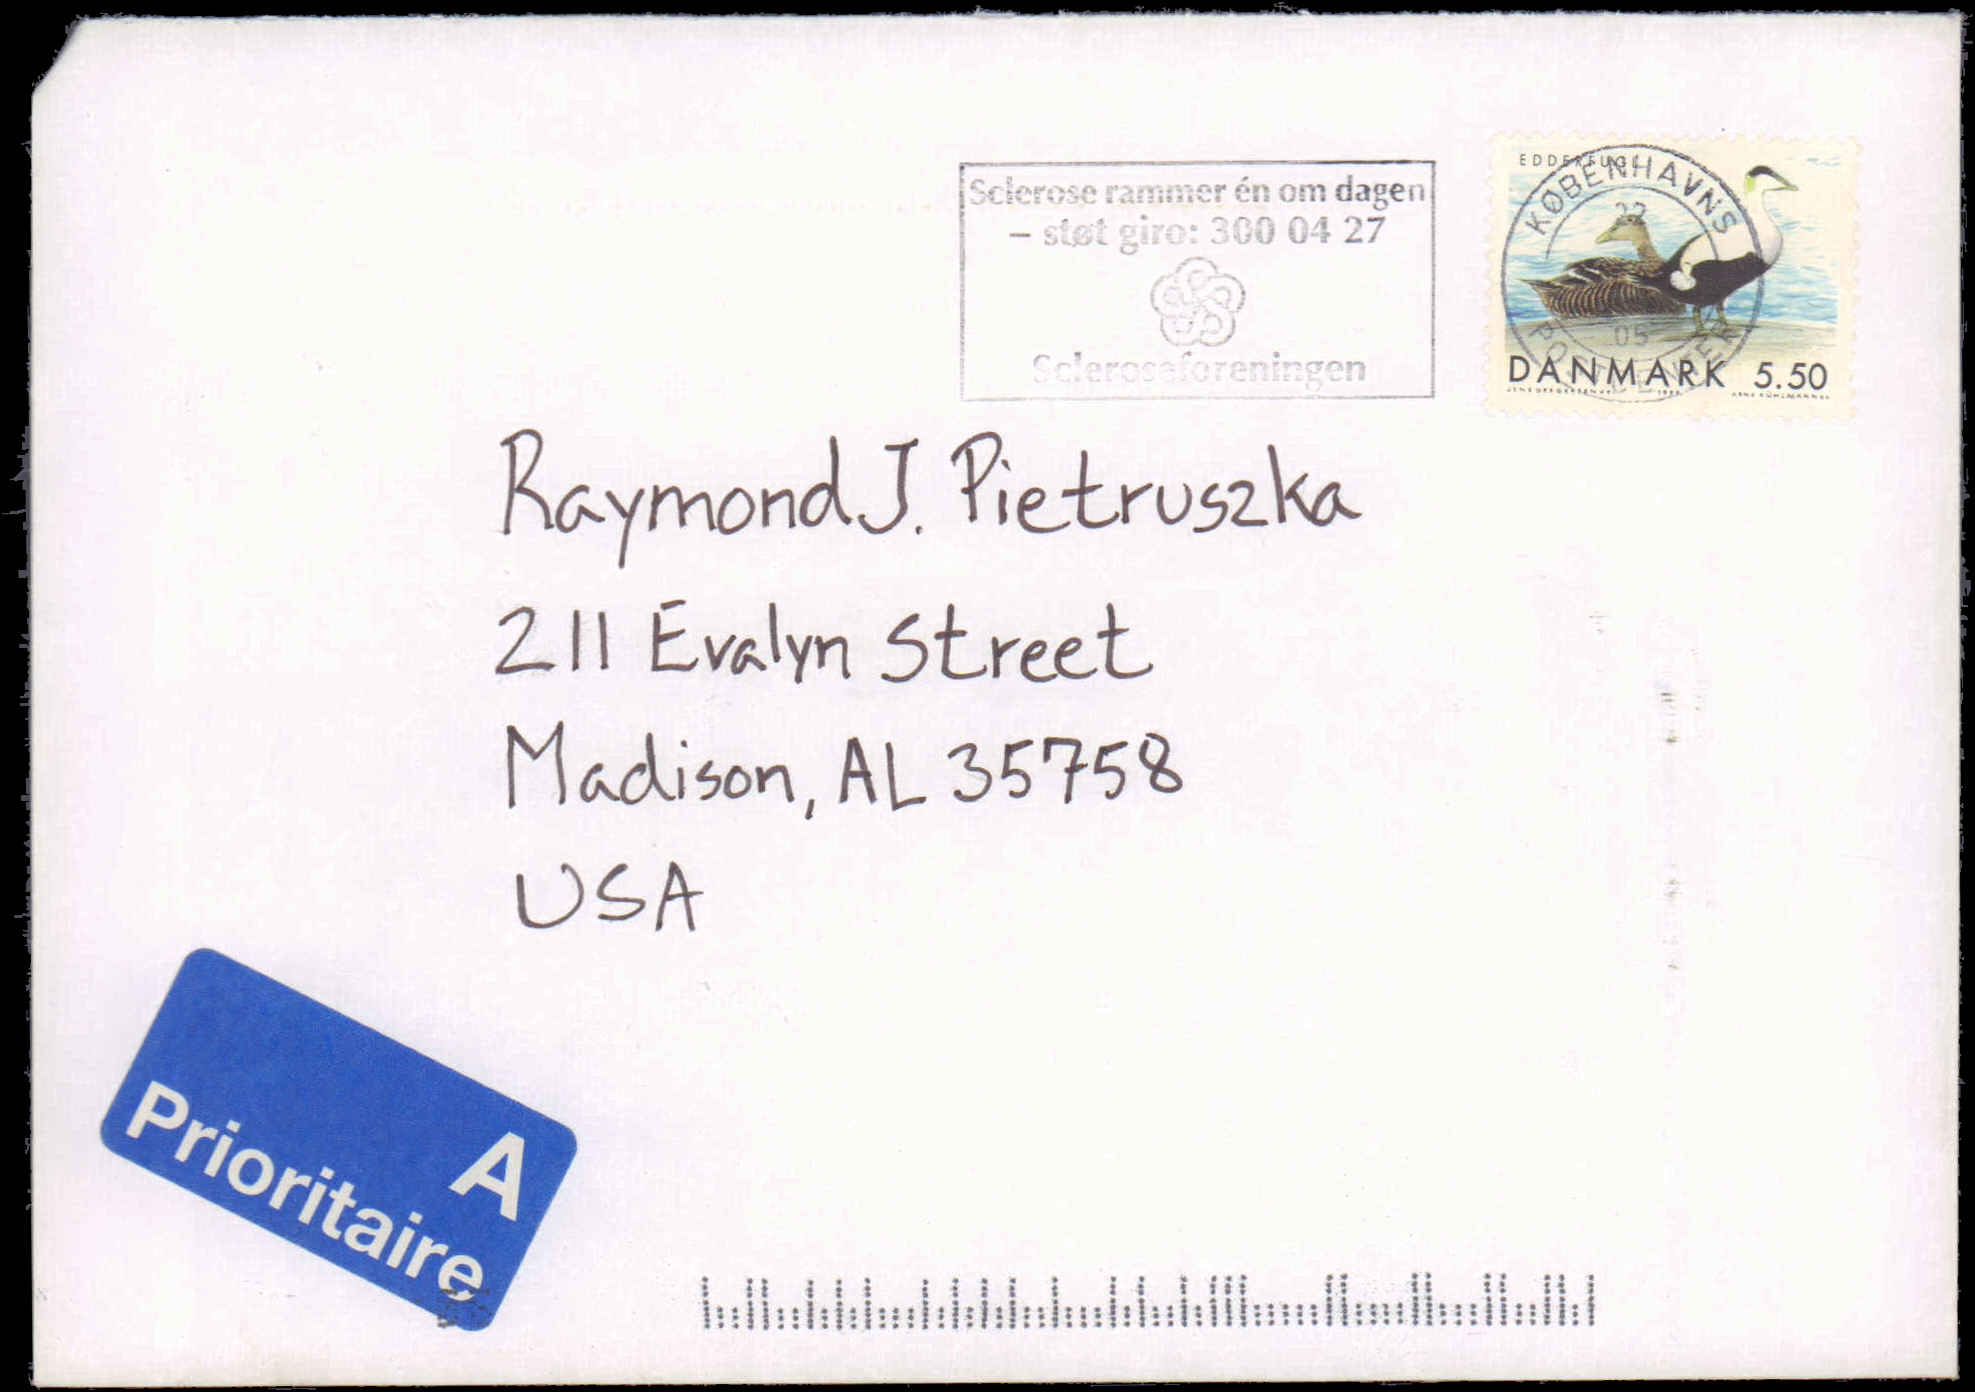 Sclerose rammer én om dagen
– støt giro: 300 04 27
Scleroseforeningen
EDDERFUGL
KØBENHAVNS
22
05
DANMARK 5.50
Raymond J. Pietruszka
211 Evalyn Street
Madison, AL 35758
USA
A
Prioritaire